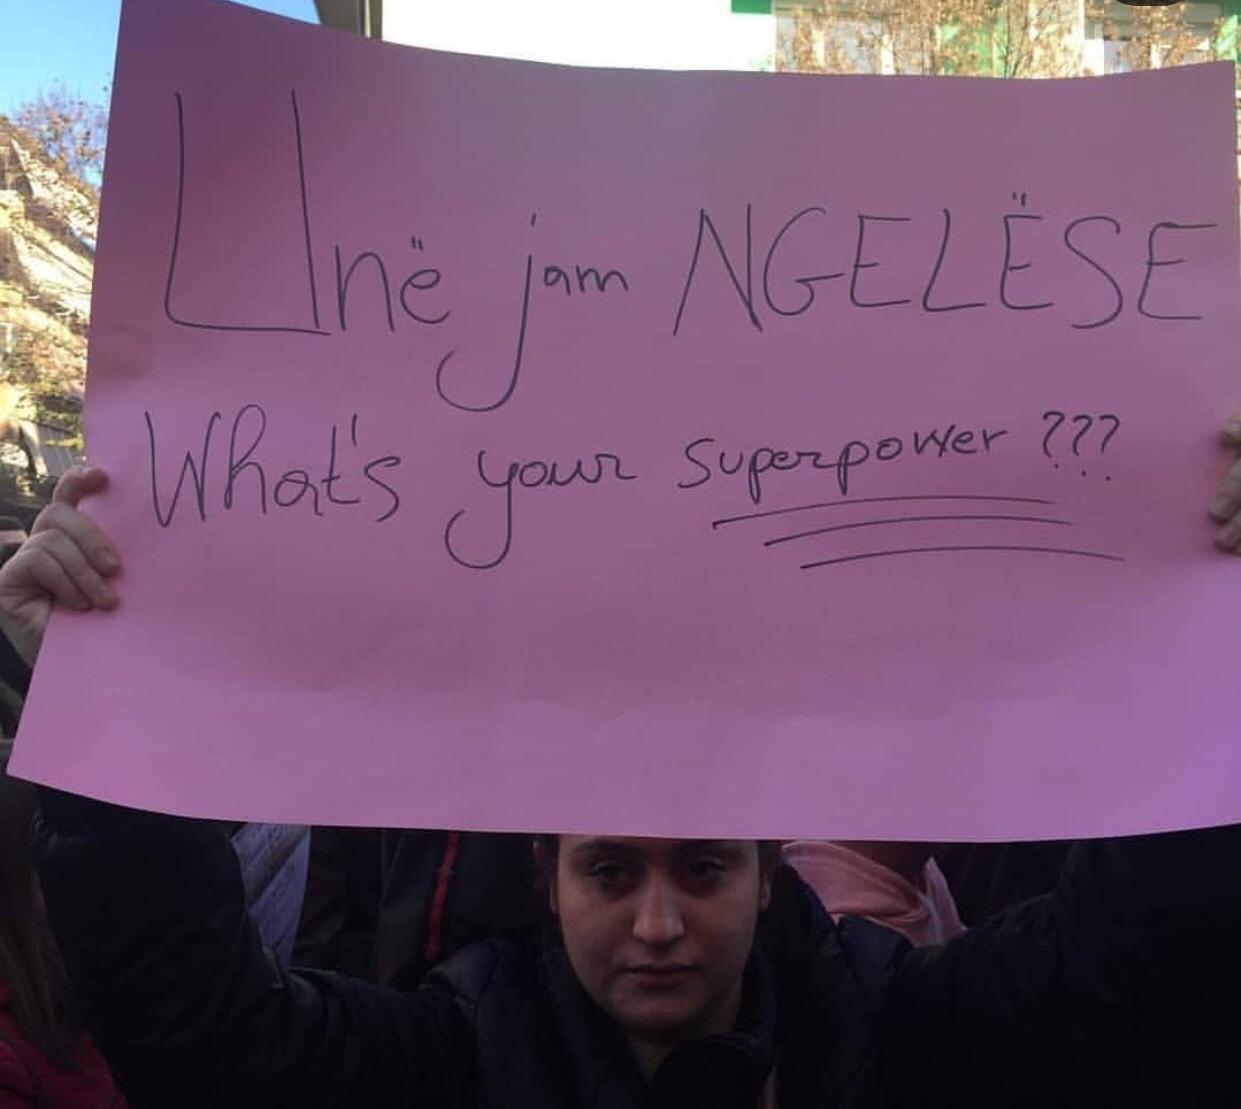 Unë jam NGELËSE
What's your superpower ???